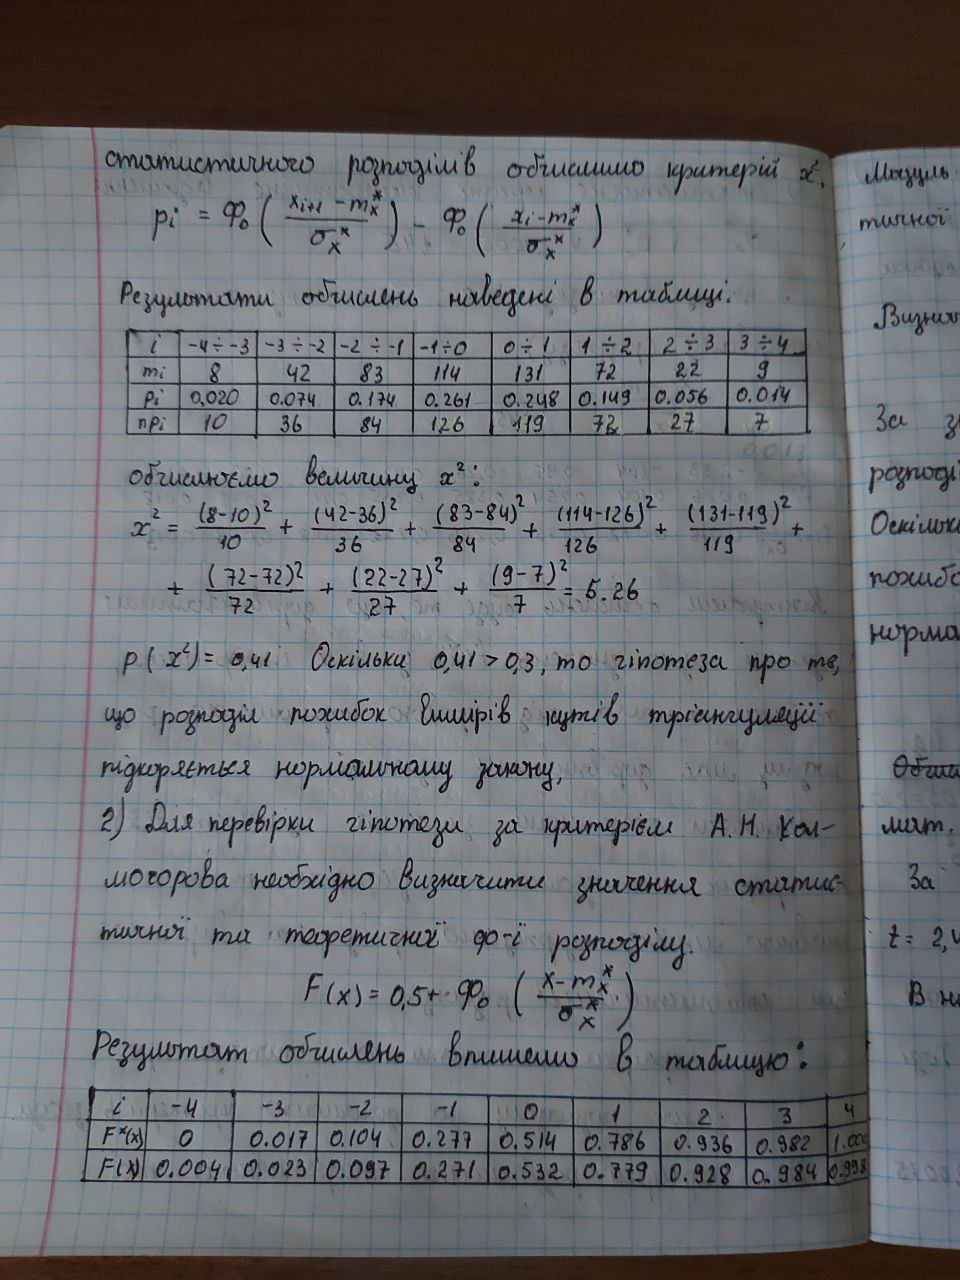 статистичного розподілів обчислимо критерій x².
pi = Ф₀ ( (xi+1 − mx*) / σx* ) − Ф₀ ( (xi − mx*) / σx* )
Результати обчислень наведені в таблиці.
i | -4÷-3 | -3÷-2 | -2÷-1 | -1÷0 | 0÷1 | 1÷2 | 2÷3 | 3÷4
mi | 8 | 42 | 83 | 114 | 131 | 72 | 22 | 9
pi | 0,020 | 0.074 | 0.174 | 0.261 | 0.248 | 0.149 | 0.056 | 0.014
npi | 10 | 36 | 84 | 126 | 119 | 72 | 27 | 7
обчислюємо величину x²:
x² = (8-10)²/10 + (42-36)²/36 + (83-84)²/84 + (114-126)²/126 + (131-119)²/119 +
+ (72-72)²/72 + (22-27)²/27 + (9-7)²/7 = 5.26
p(x²) = 0,41 Оскільки 0,41 > 0,3, то гіпотеза про те,
що розподіл похибок вимірів кутів тріангуляції
підкоряється нормальному закону,
2) Для перевірки гіпотези за критерієм А.Н. Кол-
могорова необхідно визначити значення статис-
тичної та теоретичної ф-ї розподілу.
F(x) = 0,5 + Ф₀ ( (x − mx*) / σx* )
Результат обчислень впишемо в таблицю:
i | -4 | -3 | -2 | -1 | 0 | 1 | 2 | 3 | 4
F*(x) | 0 | 0.017 | 0.104 | 0.277 | 0.514 | 0.786 | 0.936 | 0.982 | 1.000
F(x) | 0.004 | 0.023 | 0.097 | 0.271 | 0.532 | 0.779 | 0.928 | 0.984 | 0.998
Модуль
тичної
За
розподі
Оскільки
похибо
норма
мат.
За
t = 2,
В